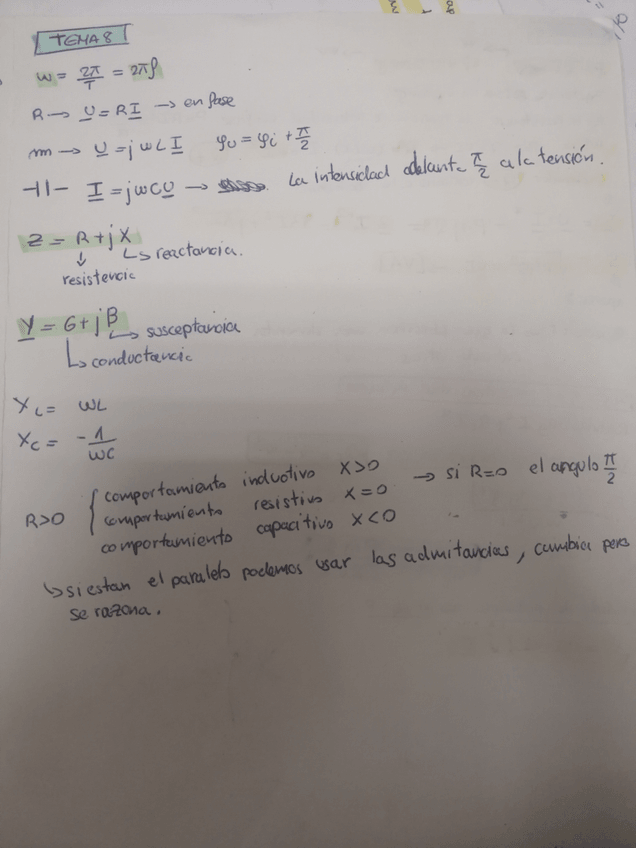 TEMA 8
ω = 2π/T = 2πf
R → U = R I → en fase
→ U = jωL I φu = φi + π/2
⊣⊢ I = jωC U → La intensidad adelanta π/2 a la tensión.
Z = R + jX
↳ reactancia.
resistencia
Y = G + jB
↳ susceptancia
↳ conductancia
X L = ωL
X C = - 1/ωC
comportamiento inductivo X>0 → si R=0 el angulo π/2
R>0 { comportamiento resistivo X=0
comportamiento capacitivo X<0
↳ si estan el paralelo podemos usar las admitancias, cambia pero
se razona.